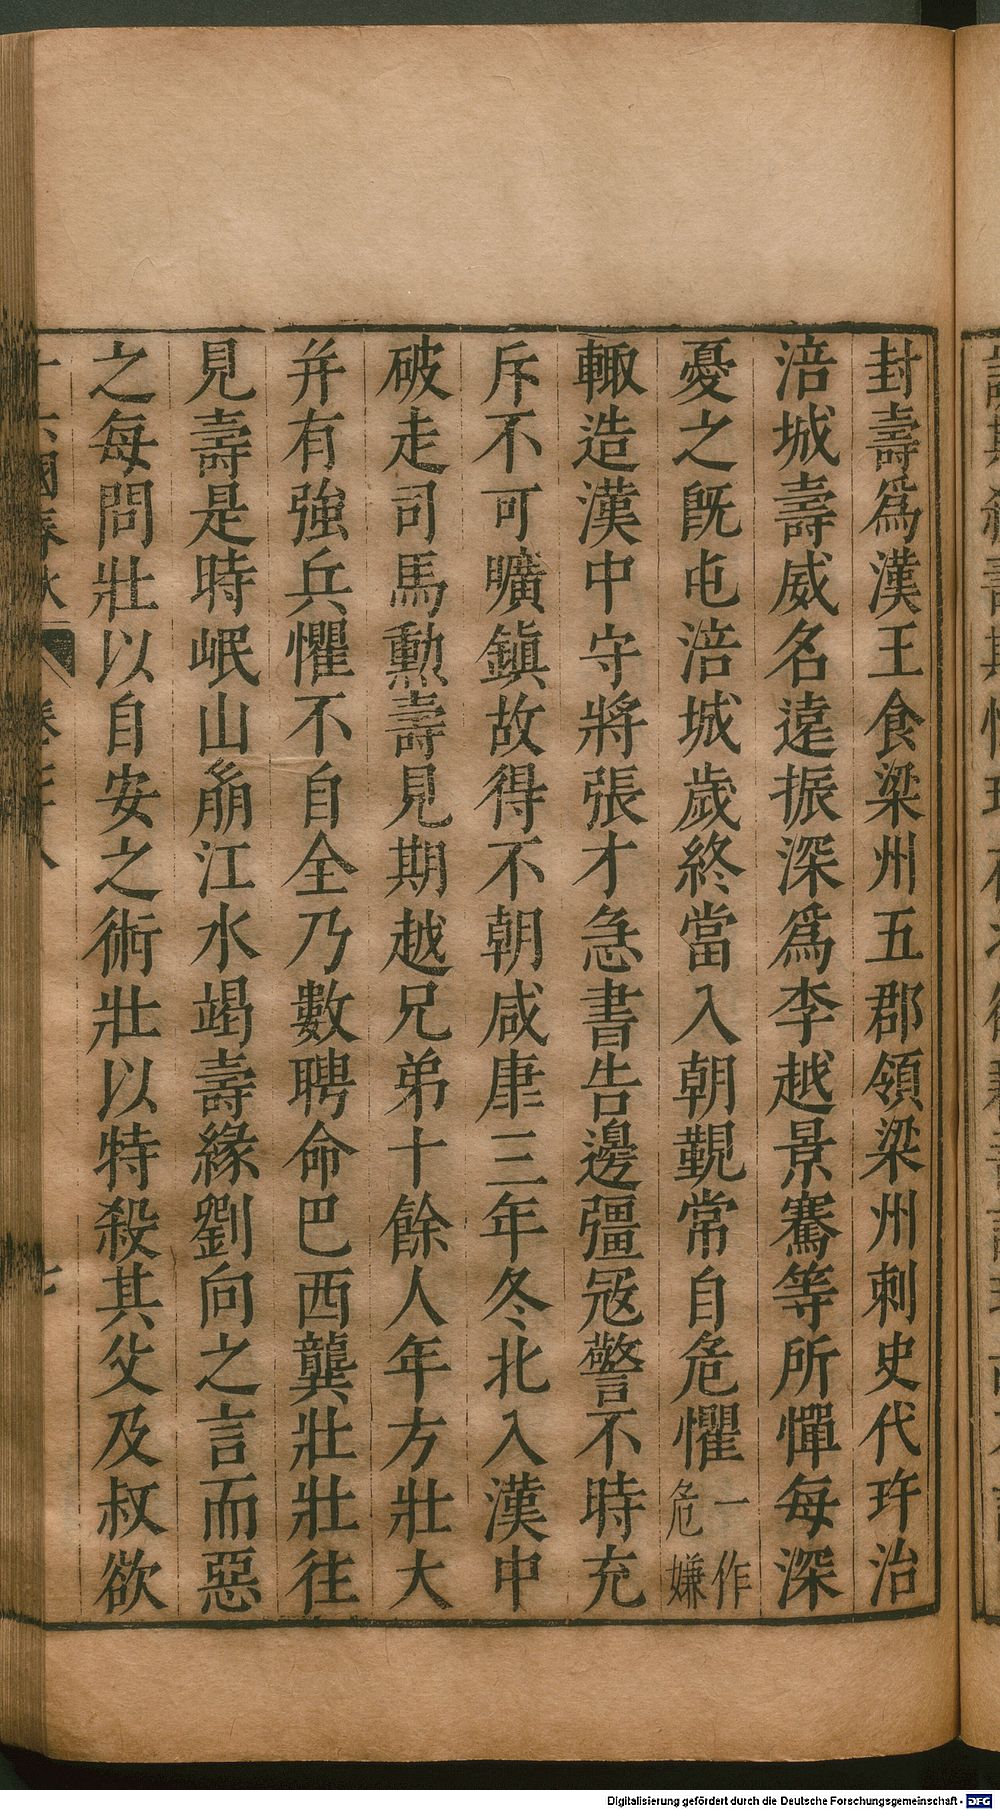 封壽爲漢王食梁州五郡領梁州刺史代玝治
涪城壽威名遠振深爲李越景騫等所憚每深
憂之旣屯涪城歲終當入朝覲常自危懼一作危嫌
輙造漢中守將張才急書告邊彊冦警不時充
斥不可曠鎮故得不朝咸康三年冬北入漢中
破走司馬勲壽見期越兄弟十餘人年方壯大
并有強兵懼不自全乃數聘命巴西龔壯壯往
見壽是時岷山崩江水竭壽緣劉向之言而惡
之每問壯以自安之術壯以特殺其父及叔欲
十六國春秋 卷七十八 七
Digitalisierung gefördert durch die Deutsche Forschungsgemeinschaft - DFG